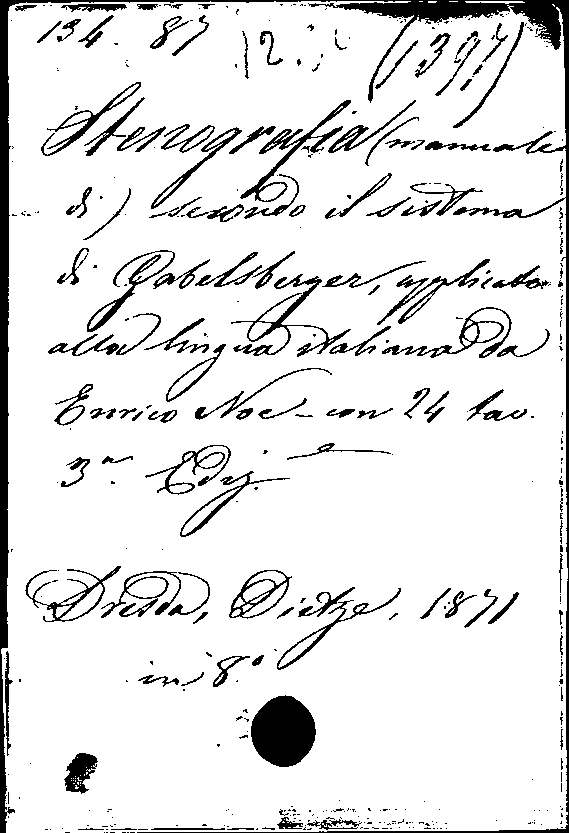 134. 87 12. (1397)
Stenografia (manuale
di) secondo il sistema
di Gabelsberger, applicato
alla lingua italiana da
Enrico Noe - con 24 tav.
3ª Ediz.
Dresda, Dietze, 1871
in 8º